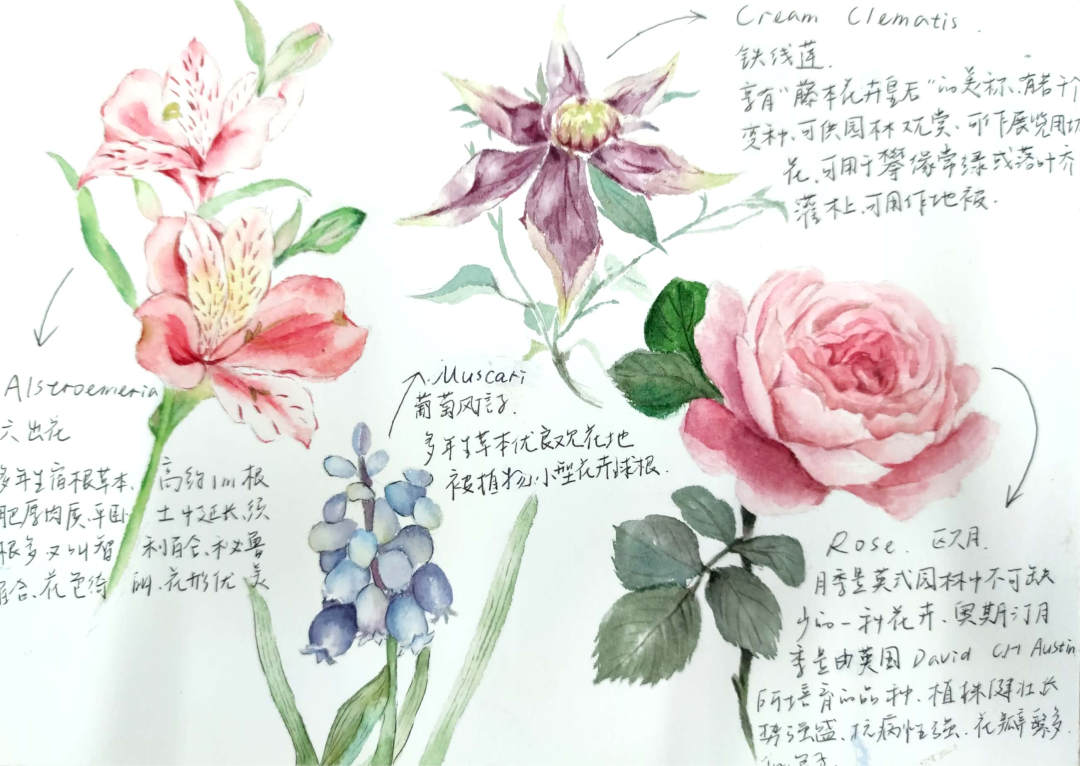 Cream Clematis.
铁线莲.
享有"藤本花卉皇后"的美称、有若干个
变种、可供园林观赏、可作展览用切
花、可用于攀缘常绿或落叶乔
灌木上、可用作地被.
Alstroemeria
六出花
多年生宿根草本、高约1m根
肥厚肉质、平卧 土中延长、须
根多又叫智 利百合、秘鲁
百合、花色绮 丽、花形优美
Muscari
葡萄风信子.
多年生草本优良观花地
被植物.小型花卉球根.
Rose. 欧月.
月季是英式园林中不可缺
少的一种花卉、奥斯汀月
季是由英国David CH Austin
所培育的品种、植株健壮长
势强盛、抗病性强、花瓣繁多